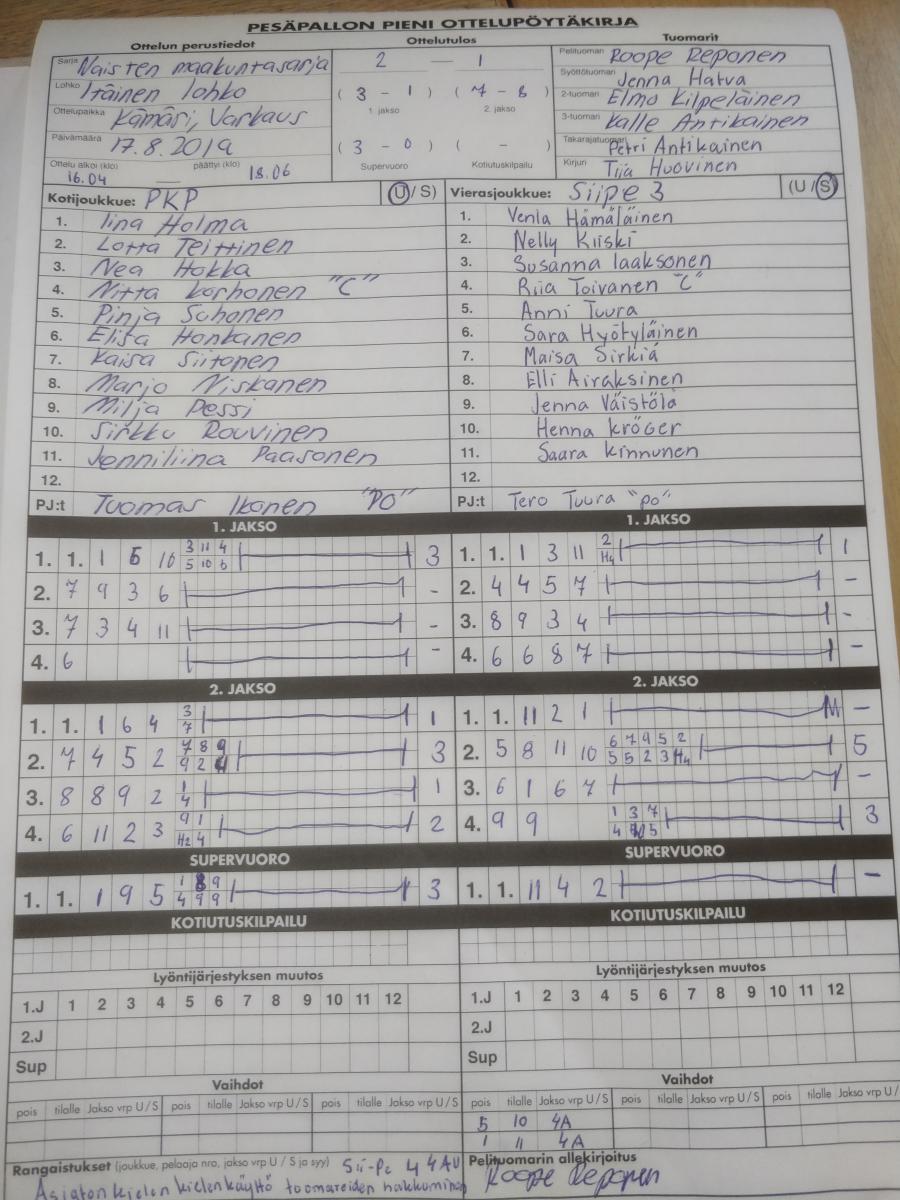 PESÄPALLON PIENI OTTELUPÖYTÄKIRJA
Ottelun perustiedot Ottelutulos Tuomarit
Sarja Naisten maakuntasarja 2 — 1 Pelituomari Roope Reponen
Lohko Itäinen lohko ( 3 - 1 ) ( 7 - 8 ) Syöttötuomari Jenna Hatva
1. jakso 2. jakso 2-tuomari Elmo Kilpeläinen
Ottelupaikka Kämäri, Varkaus 3-tuomari Kalle Antikainen
Päivämäärä 17.8.2019 ( 3 - 0 ) ( - ) Takarajatuomari Petri Antikainen
Ottelu alkoi (klo) 16.04 — päättyi (klo) 18.06 Supervuoro Kotiutuskilpailu Kirjuri Tiia Huovinen
Kotijoukkue: PKP (U / S) Vierasjoukkue: Siipe 3 (U / S)
1. Iina Holma 1. Venla Hämäläinen
2. Lotta Teittinen 2. Nelly Kiiski
3. Nea Hokka 3. Susanna laaksonen
4. Nitta korhonen "C" 4. Riia Toivanen "C"
5. Pinja Suhonen 5. Anni Tuura
6. Elisa Honkanen 6. Sara Hyötyläinen
7. Kaisa Siitonen 7. Maisa Sirkiä
8. Marjo Niskanen 8. Elli Airaksinen
9. Milja Pessi 9. Jenna Väistölä
10. Sirkku Rouvinen 10. Henna kröger
11. Jenniliina Paasonen 11. Saara kinnunen
12. 12.
PJ:t Tuomas Ikonen "PO" PJ:t Tero Tuura "po"
1. JAKSO 1. JAKSO
1. 1. 1 6 10 3 11 4 3 1. 1. 1 3 11 2 1
5 10 6 H4
2. 7 9 3 6 - 2. 4 4 5 7 -
3. 7 3 4 11 - 3. 8 9 3 4 -
4. 6 - 4. 6 6 8 7 -
2. JAKSO 2. JAKSO
1. 1. 1 6 4 3 1 1. 1. 11 2 1 -
7
2. 7 4 5 2 7 8 9 3 2. 5 8 11 10 6 7 9 5 2 5
9 2 4 5 5 2 3 H4
3. 8 8 9 2 1 1 3. 6 1 6 7 -
4
4. 6 11 2 3 9 1 2 4. 9 9 1 3 7 3
H2 4 4 5
SUPERVUORO SUPERVUORO
1. 1. 1 9 5 1 8 9 3 1. 1. 11 4 2 -
4 9 9
KOTIUTUSKILPAILU KOTIUTUSKILPAILU
Lyöntijärjestyksen muutos Lyöntijärjestyksen muutos
1.J 1 2 3 4 5 6 7 8 9 10 11 12 1.J 1 2 3 4 5 6 7 8 9 10 11 12
2.J 2.J
Sup Sup
Vaihdot Vaihdot
pois tilalle Jakso vrp U / S pois tilalle Jakso vrp U / S pois tilalle Jakso vrp U / S pois tilalle Jakso vrp U / S pois tilalle Jakso vrp U / S pois tilalle Jakso vrp U / S
5 10 4A
1 11 4A
Rangaistukset (joukkue, pelaaja nro, jakso vrp U / S ja syy) Sii-Pe 4 4AU Pelituomarin allekirjoitus
Asiaton kielen kielenkäyttö tuomareiden haukkuminen Roope Reponen